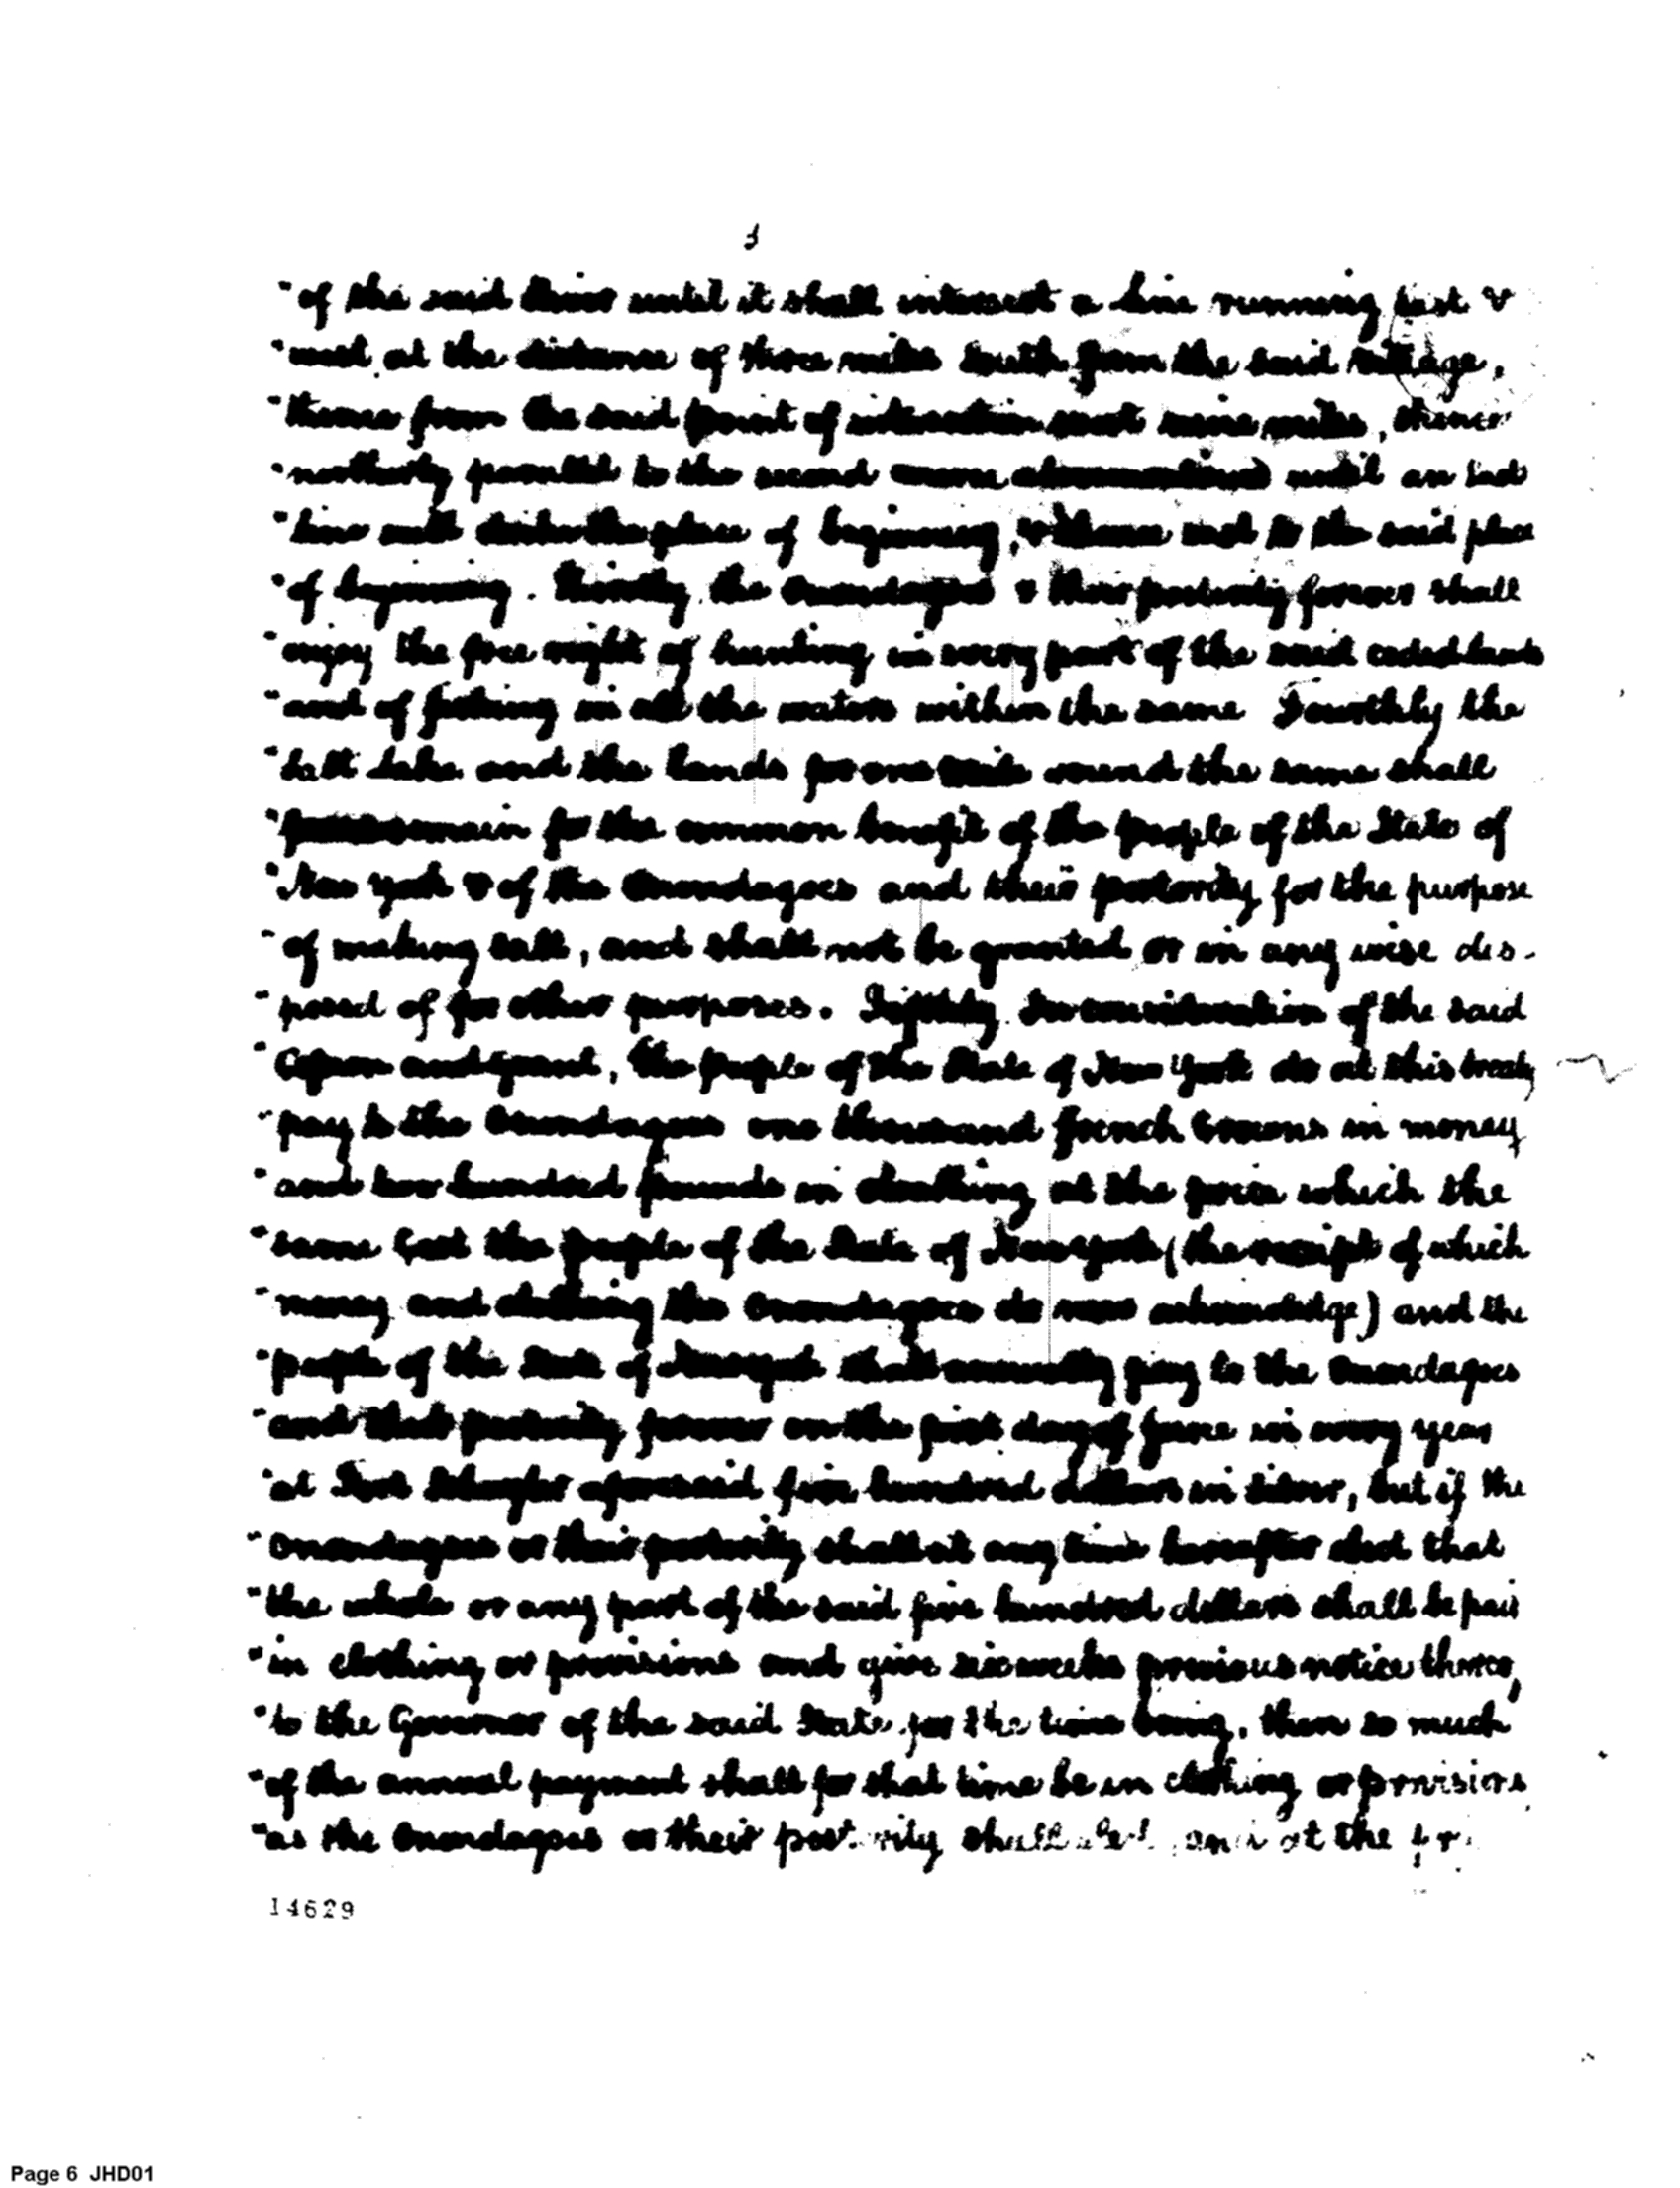 3
"of the said river until it shall intersect a line running East &
"west at the distance of three miles South from the said village,
"thence from the said point of intersection west nine miles, thence
"northerly parallel to the second course abovementioned until an East
"line will strike the place of beginning, & thence east to the said place
"of beginning. Thirdly, the Onondagoes & their posterity forever shall
"enjoy the free right of hunting in every part of the said ceded lands
"and of fishing in all the waters within the same Fourthly the
"Salt Lake and the lands for one mile round the same shall
"forever remain for the common benefit of the people of the State of
"New York & of the Onondagoes and their posterity for the purpose
"of making salt, and shall not be granted or in any wise dis-
"posed of for other purposes. Fifthly, In consideration of the said
"Cession and grant, the people of the State of New York do at this treaty
"pay to the Onondagoes one thousand french Crowns in money
"and two hundred pounds in clothing at the price which the
"same Cost the people of the State of New York (the receipt of which
"money and clothing the Onondagoes do now acknowledge) and the
"people of the State of New York shall annually pay to the Onondagoes
"and their posterity forever on the first day of June in every year
"at Fort Schuyler aforesaid five hundred dollars in silver, but if the
"Onondagoes or their posterity shall at any time hereafter elect that
"the whole or any part of the said five hundred dollars shall be paid
"in clothing or provisions and give six weeks previous notice thereof
"to the Governor of the said State for the time being, then so much
"of the annual payment shall for that time be in clothing or provisions
"as the Onondagoes or their posterity shall elect, and at the
14629
Page 6 JHD01